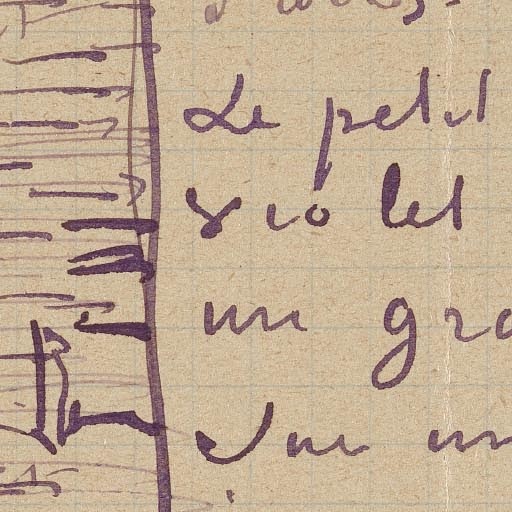 Le petit
violet
un gra
Sur un